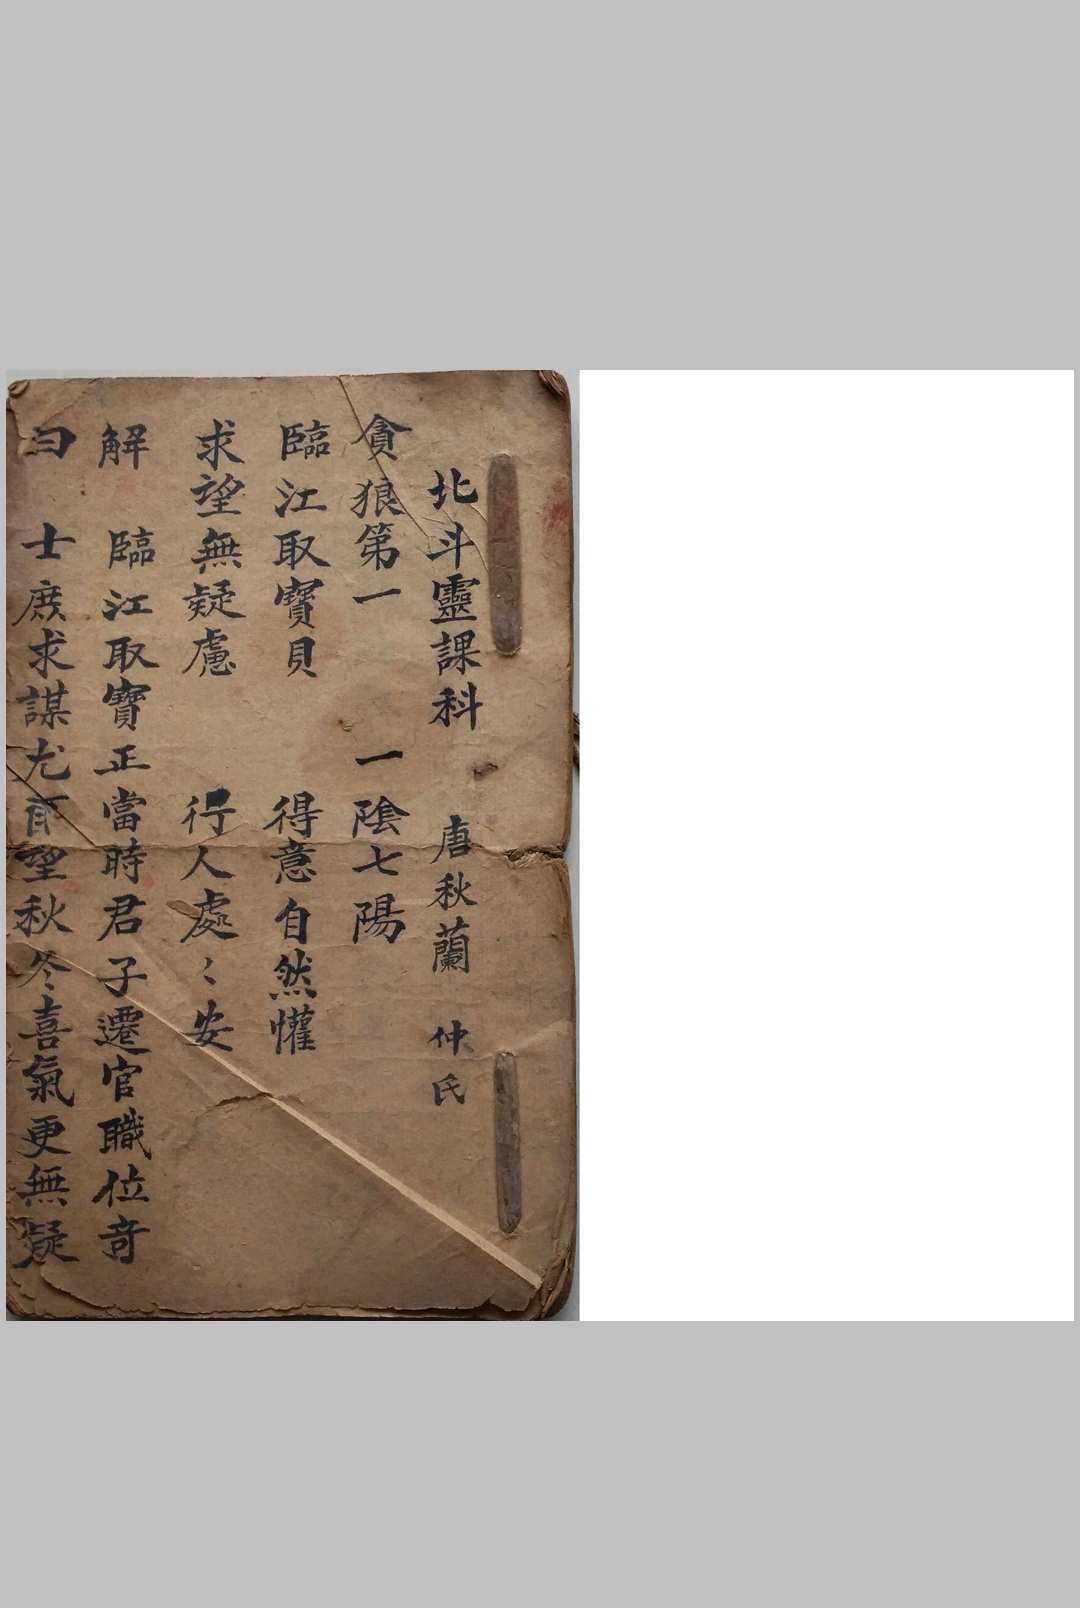 北斗靈課科 唐秋蘭 仲氏
貪狼第一 一陰七陽
臨江取寶貝 得意自然懽
求望無疑慮 行人處〻安
解 臨江取寶正當時君子遷官職位奇
曰 士庶求謀尤有望秋冬喜氣更無疑